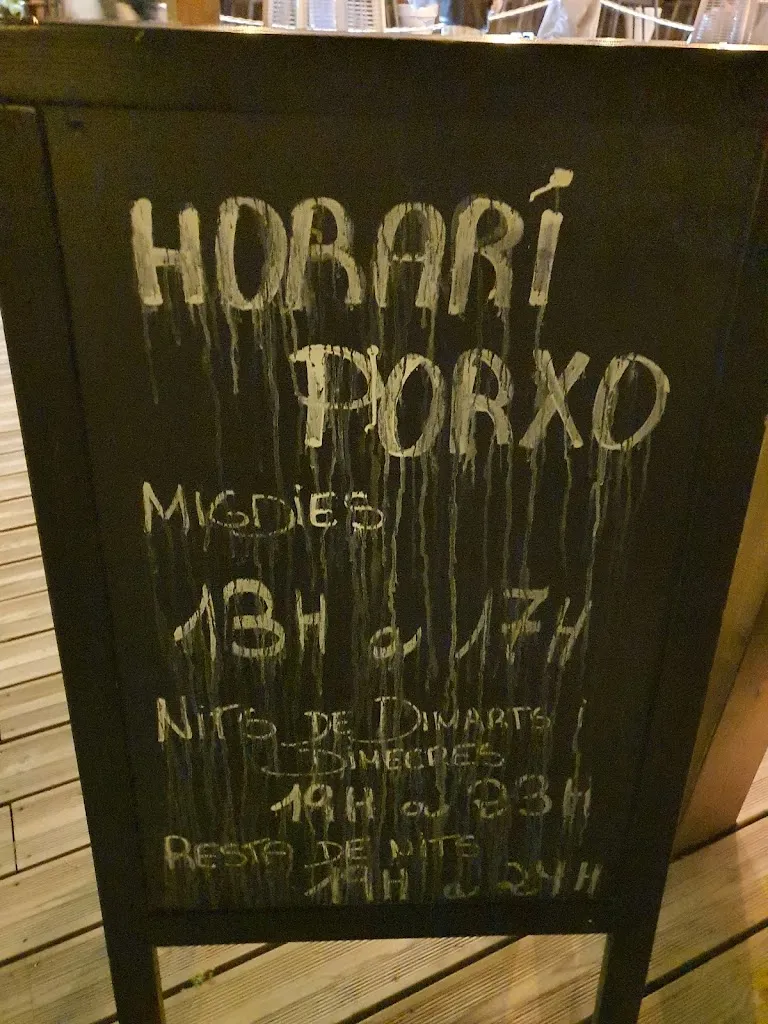 HORARÍ
PORXO
MIGDIES
13H a 17H
NITS DE DIMARTS i
DIMECRES
19H a 23H
RESTA DE NITS
19H a 24H